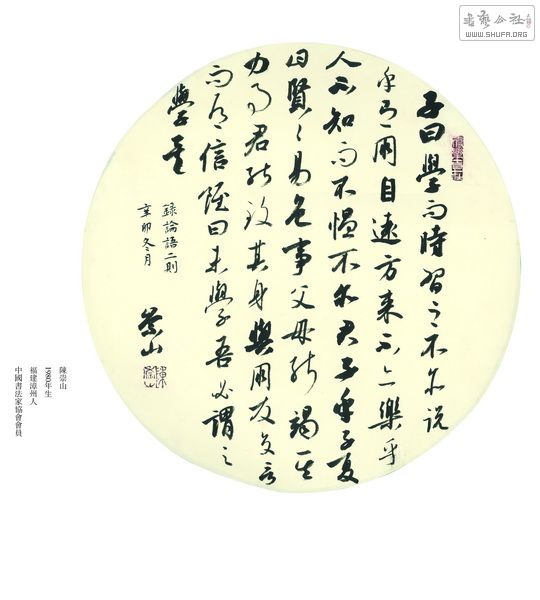 書藝公社
WWW.SHUFA.ORG
子曰學而時習之不亦说
乎有朋自遠方来不亦樂乎
人不知而不愠不亦君子乎子夏
曰賢々易色事父母能竭其
力事君能致其身與朋友交言
而有信雖曰未學吾必謂之
學矣
録論語二則
辛卯冬月
崇山
陳崇山
1980年生
福建漳州人
中國書法家協會會員